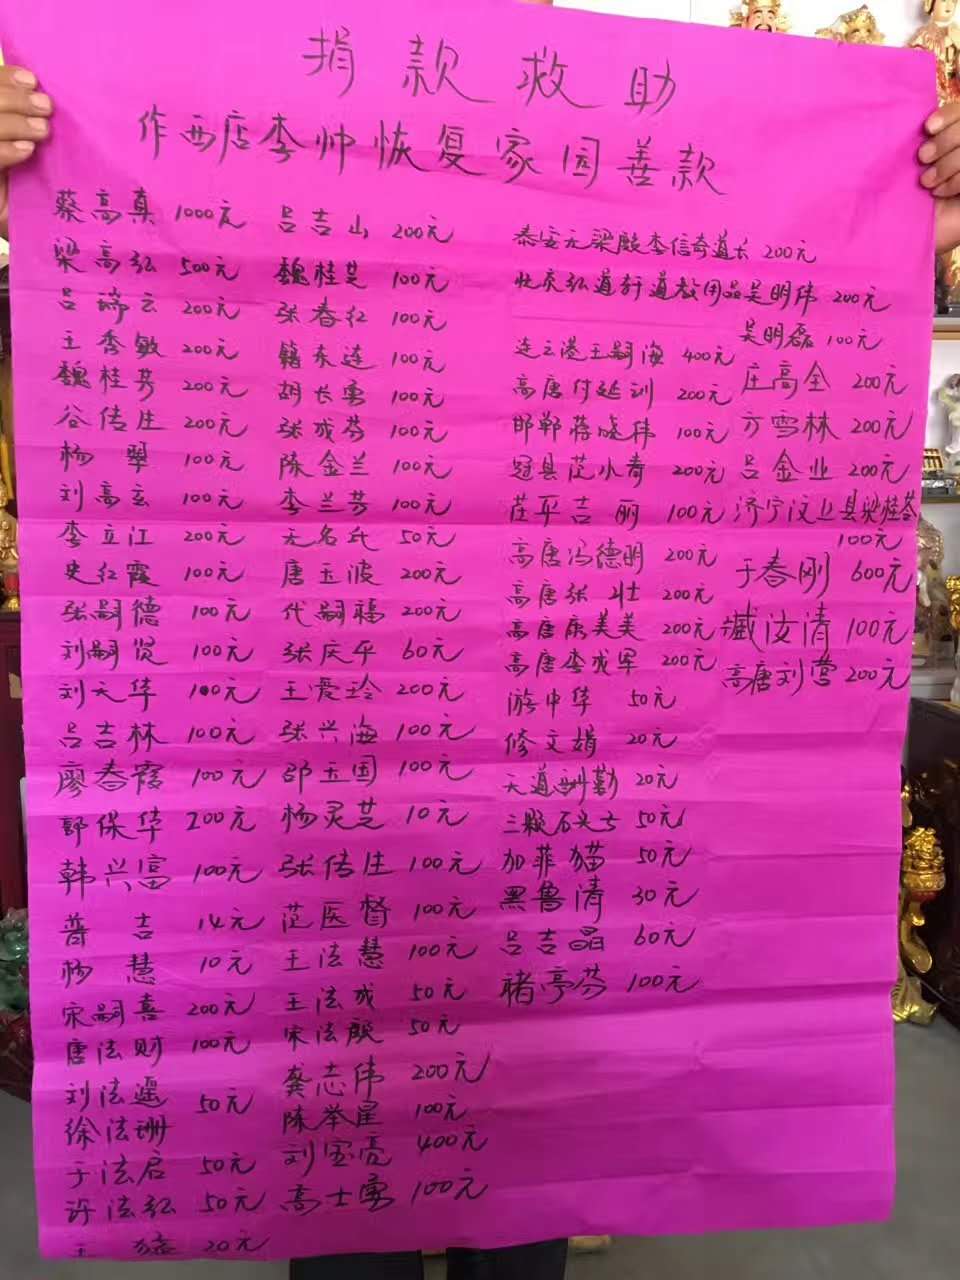 捐款救助
作西店李帅恢复家园善款
蔡高真 1000元
梁高弘 500元
吕瑞云 200元
王秀敏 200元
魏桂芳 200元
谷传生 200元
杨翠 100元
刘高玄 100元
李立江 200元
史红霞 100元
张嗣德 100元
刘嗣贤 100元
刘天华 100元
吕吉林 100元
廖春霞 100元
郭保华 200元
韩兴富 100元
普吉 14元
杨慧 10元
宋嗣喜 200元
唐法财 100元
刘法遥 50元
徐法珊
于法启 50元
许法弘 50元
王 20元
吕吉山 200元
魏桂芝 100元
张春红 100元
籍东连 100元
胡长勇 100元
张成芬 100元
陈金兰 100元
李兰芳 100元
无名氏 50元
唐玉波 200元
代嗣福 200元
张庆平 60元
王爱玲 200元
张兴海 100元
邵玉国 100元
杨灵芝 10元
张传生 100元
范医督 100元
王法慧 100元
王法成 50元
宋法殿 50元
龚志伟 200元
陈举星 100元
刘宝亮 400元
高士勇 100元
泰安元梁殿李信奇道长 200元
弘道轩道教用品吴明伟 200元
吴明磊 100元
连云港王嗣海 400元
高唐付延训 200元
邯郸蒋晓伟 100元
冠县范小青 200元
茌平吉丽 100元
高唐冯德明 200元
高唐张壮 200元
高唐康美美 200元
高唐李成军 200元
游中华 50元
修文娟 20元
天道酬勤 20元
三颗石头 50元
加菲猫 50元
黑鲁清 30元
吕吉晶 60元
褚亭芬 100元
庄高全 200元
方雪林 200元
吕金业 200元
济宁汶上县梁桂荟
100元
于春刚 600元
臧汝清 100元
高唐刘营 200元